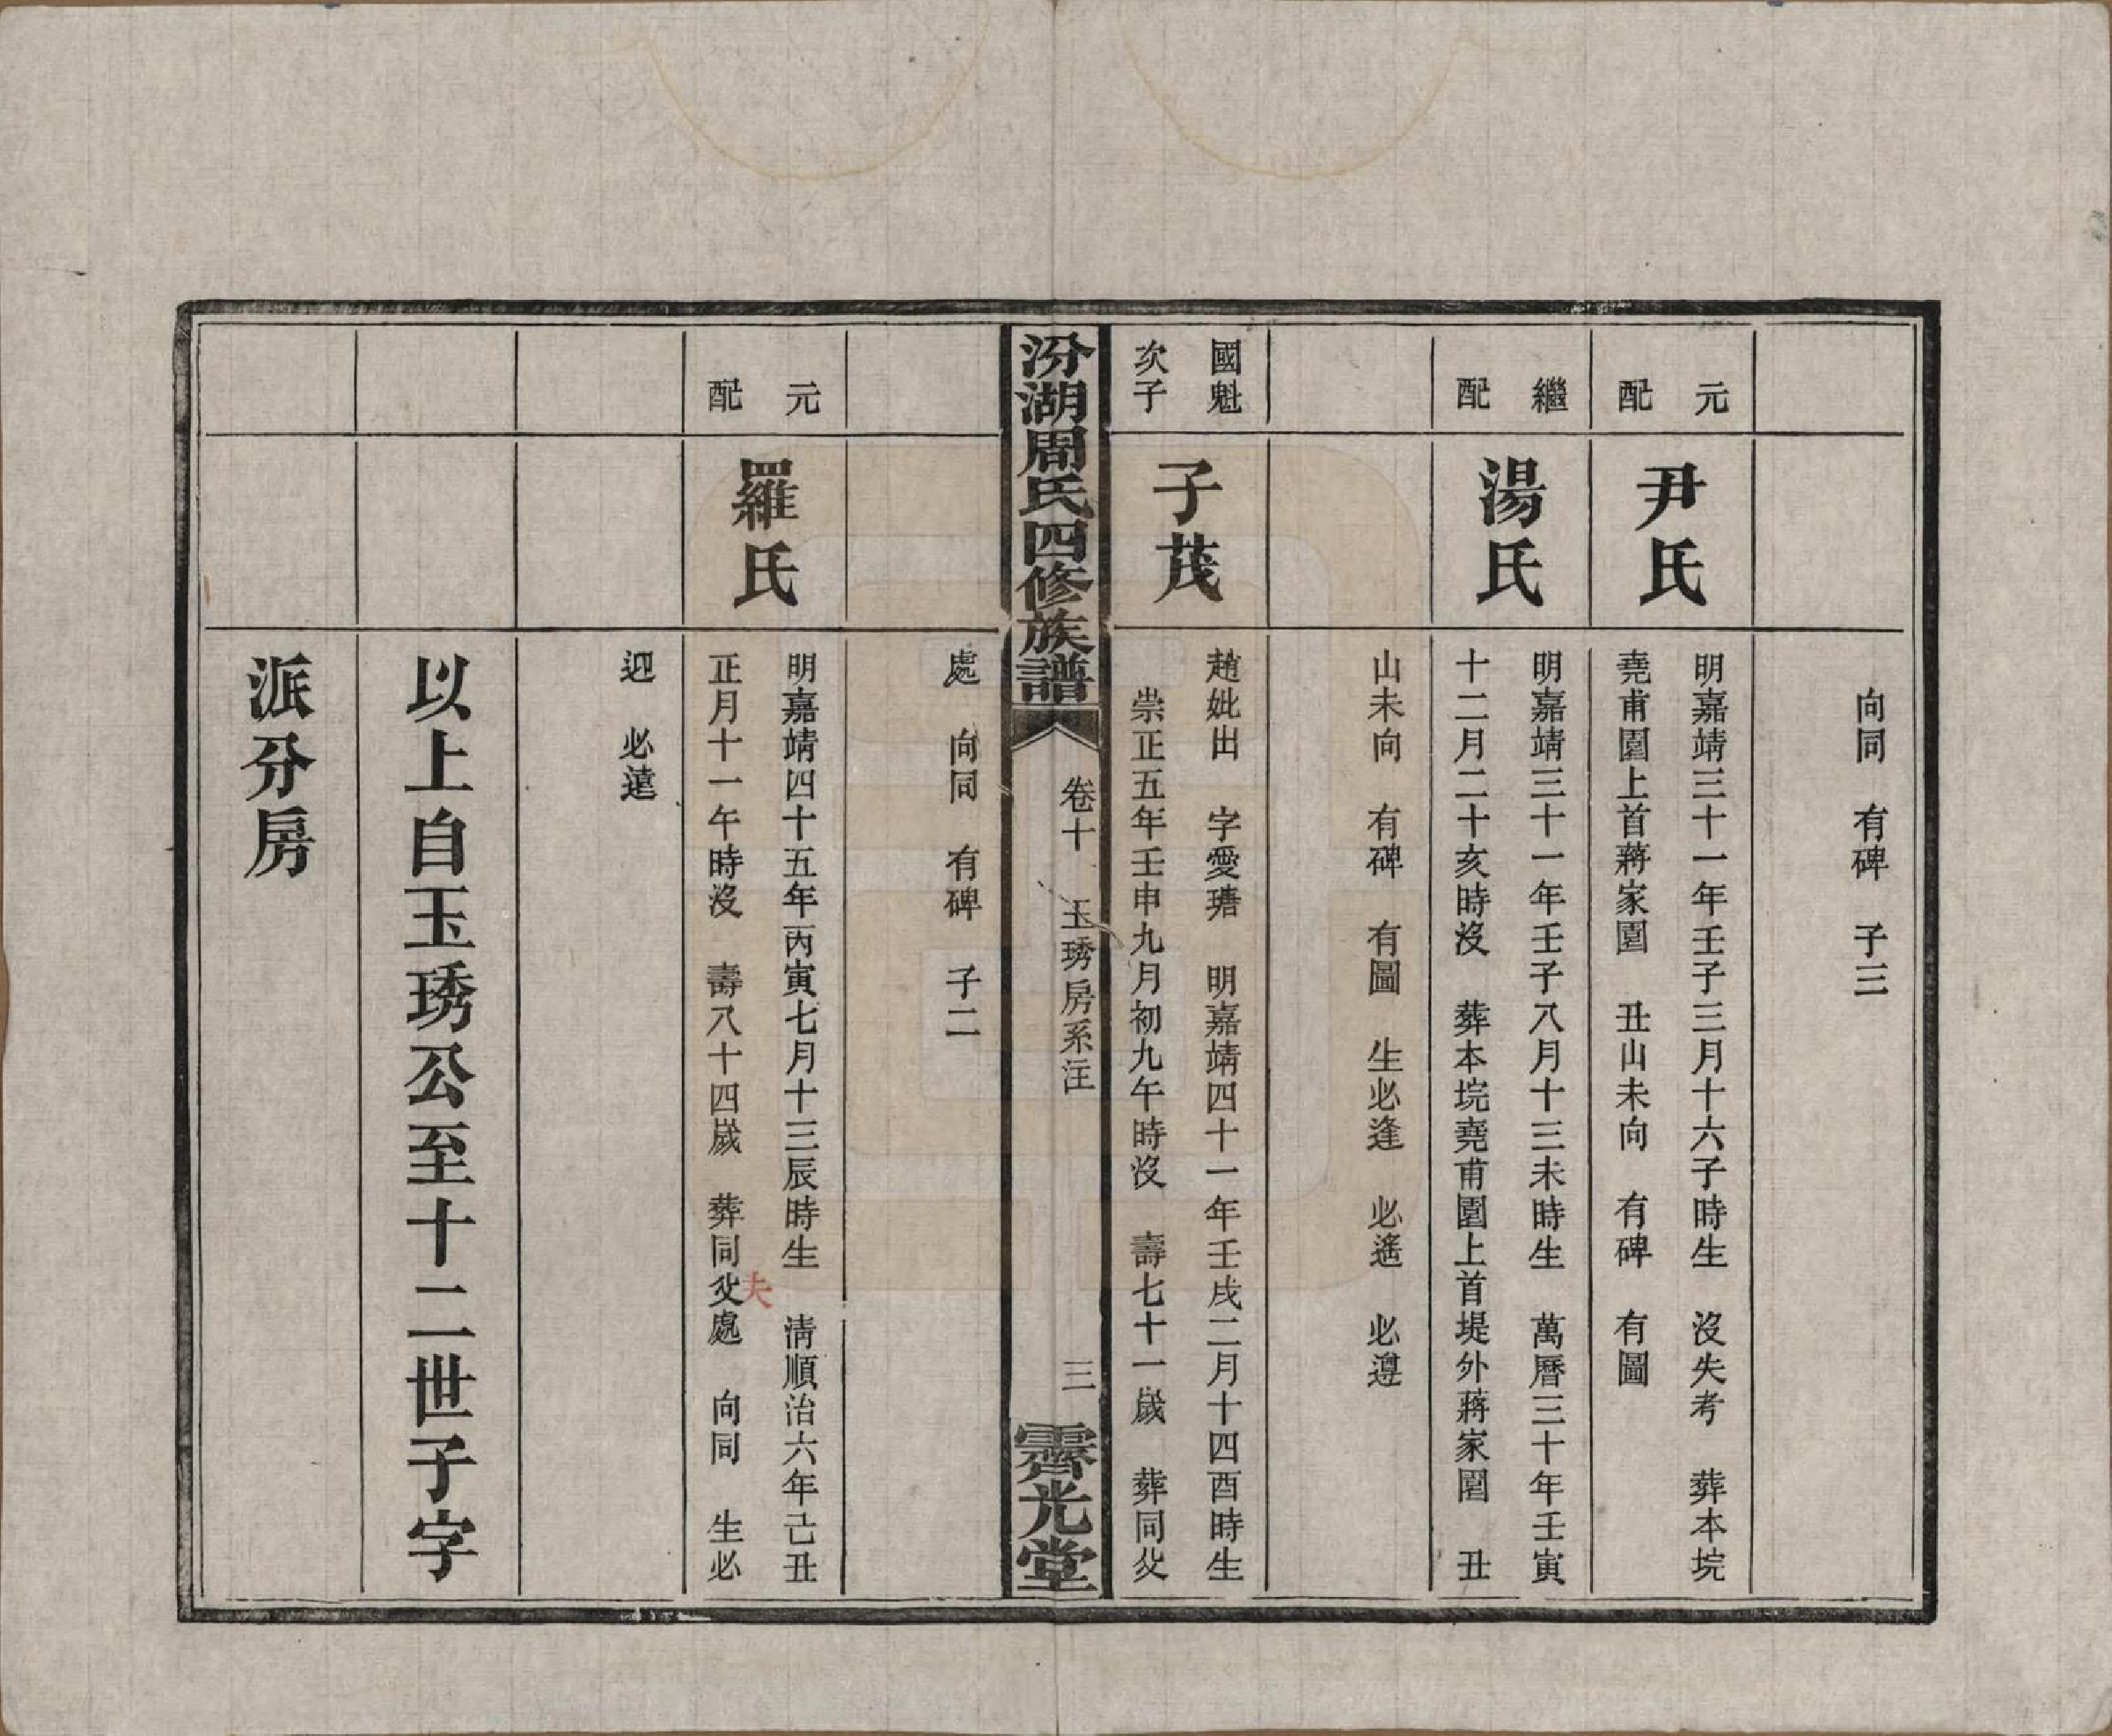 向同　有碑　子三
元配
尹氏
明嘉靖三十一年壬子三月十六子時生　沒失考　葬本垸
堯甫園上首蔣家園　丑山未向　有碑　有圖
繼配
湯氏
明嘉靖三十一年壬子八月十三未時生　萬曆三十年壬寅
十二月二十亥時沒　葬本垸堯甫園上首堤外蔣家園　丑
山未向　有碑　有圖　生必逢　必遙　必遵
國魁
次子
子茂
趙妣出　字愛瑭　明嘉靖四十一年壬戌二月十四酉時生
崇正五年壬申九月初九午時沒　壽七十一歲　葬同父
汾湖周氏四修族譜
卷十　玉琇房系注
三
霽光堂
處　向同　有碑　子二
元配
羅氏
明嘉靖四十五年丙寅七月十三辰時生　清順治六年己丑
正月十一午時沒　壽八十四歲　葬同父處　向同　生必
夫
迎　必達
以上自玉琇公至十二世子字
派分房